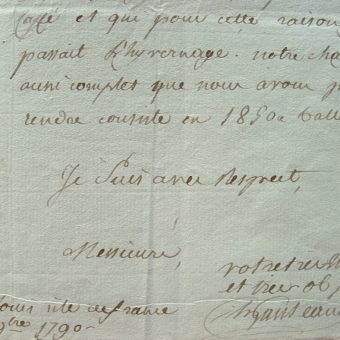 Café et qui pour cette raison
passait l'hyvernage. notre cha
aussi complet que nous avons p
rendre en 1850
Je suis avec Respect,
Messieurs,
votre tres
et tres ob
isle de france
9bre 1790